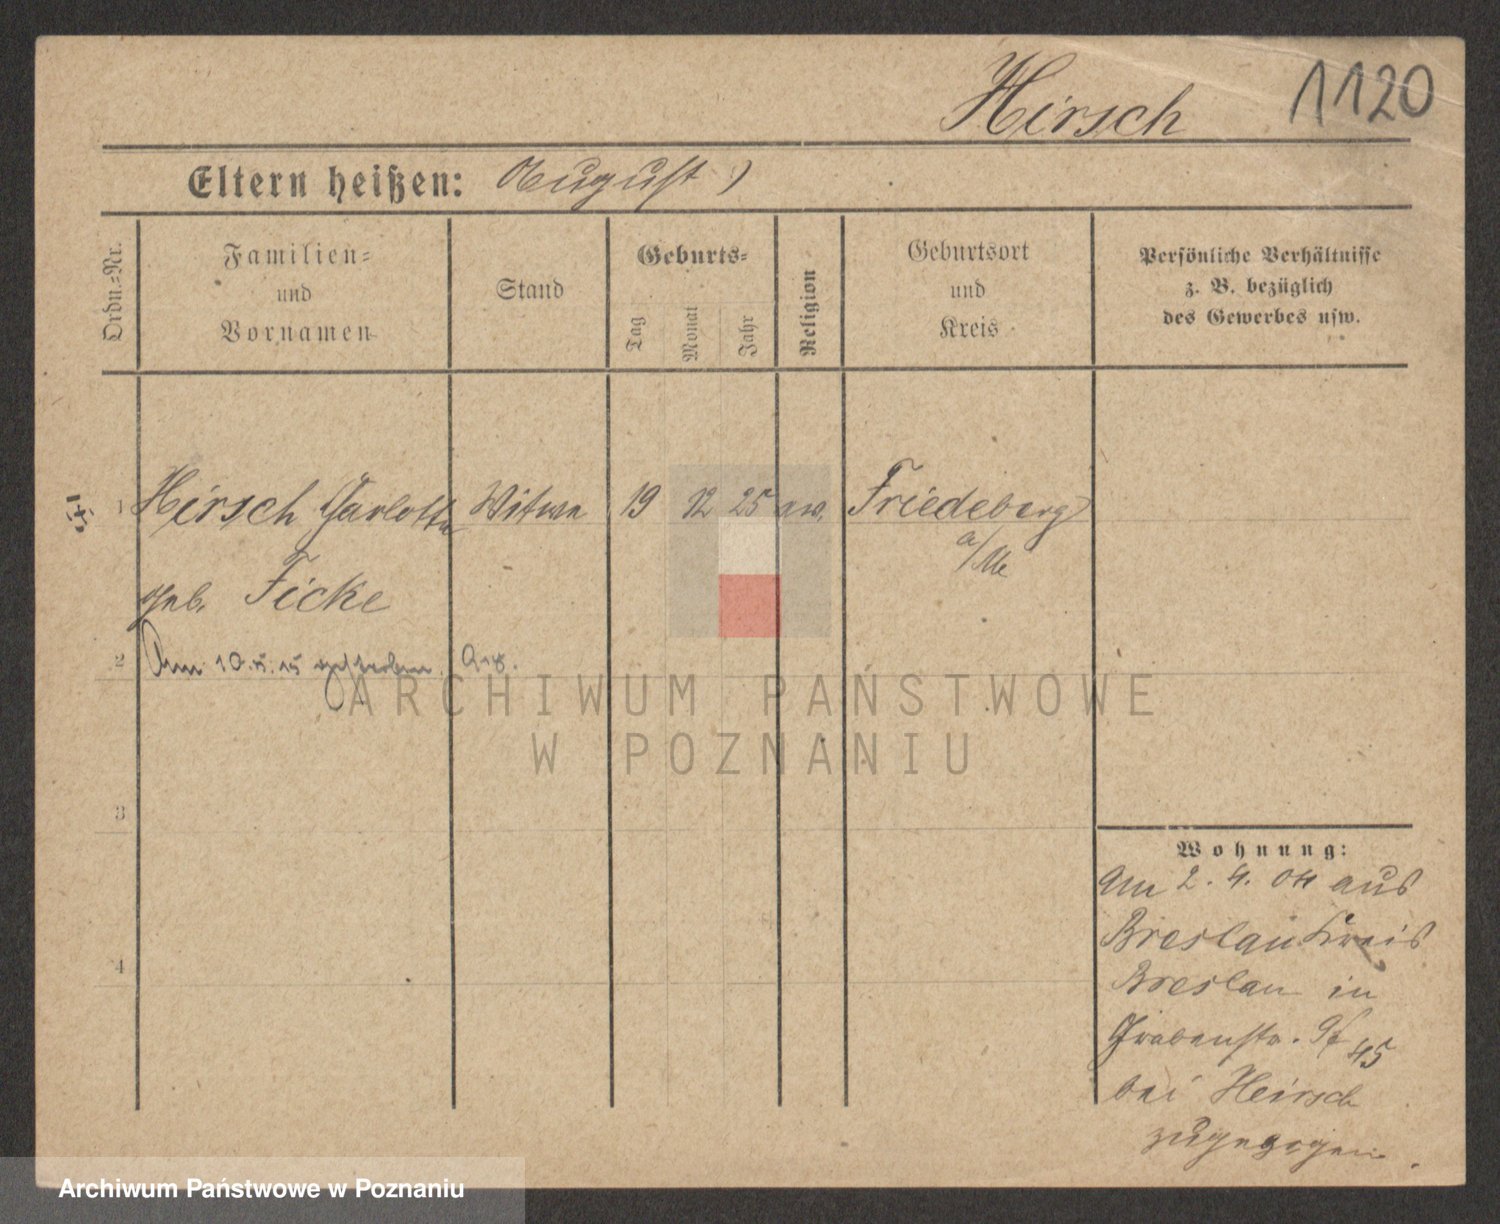 Hirsch 1120
Eltern heißen: August)
Ordn.-Nr.
Familien-
und
Vornamen
Stand
Geburts-
Tag
Monat
Jahr
Religion
Geburtsort
und
Kreis
Persönliche Verhältnisse
z. B. bezüglich
des Gewerbes usw.
1 Hirsch Charlotte Witwe 19 12 25 ew. Friedeberg
geb. Ficke
2 Am 10. 5. 15 gestorben.
ARCHIWUM PAŃSTWOWE
W POZNANIU
3
4
Wohnung:
Am 2. 4. 04 aus
Breslau Kreis
Breslau in
Grabenstr. 45
bei Hirsch
zugezogen.
Archiwum Państwowe w Poznaniu